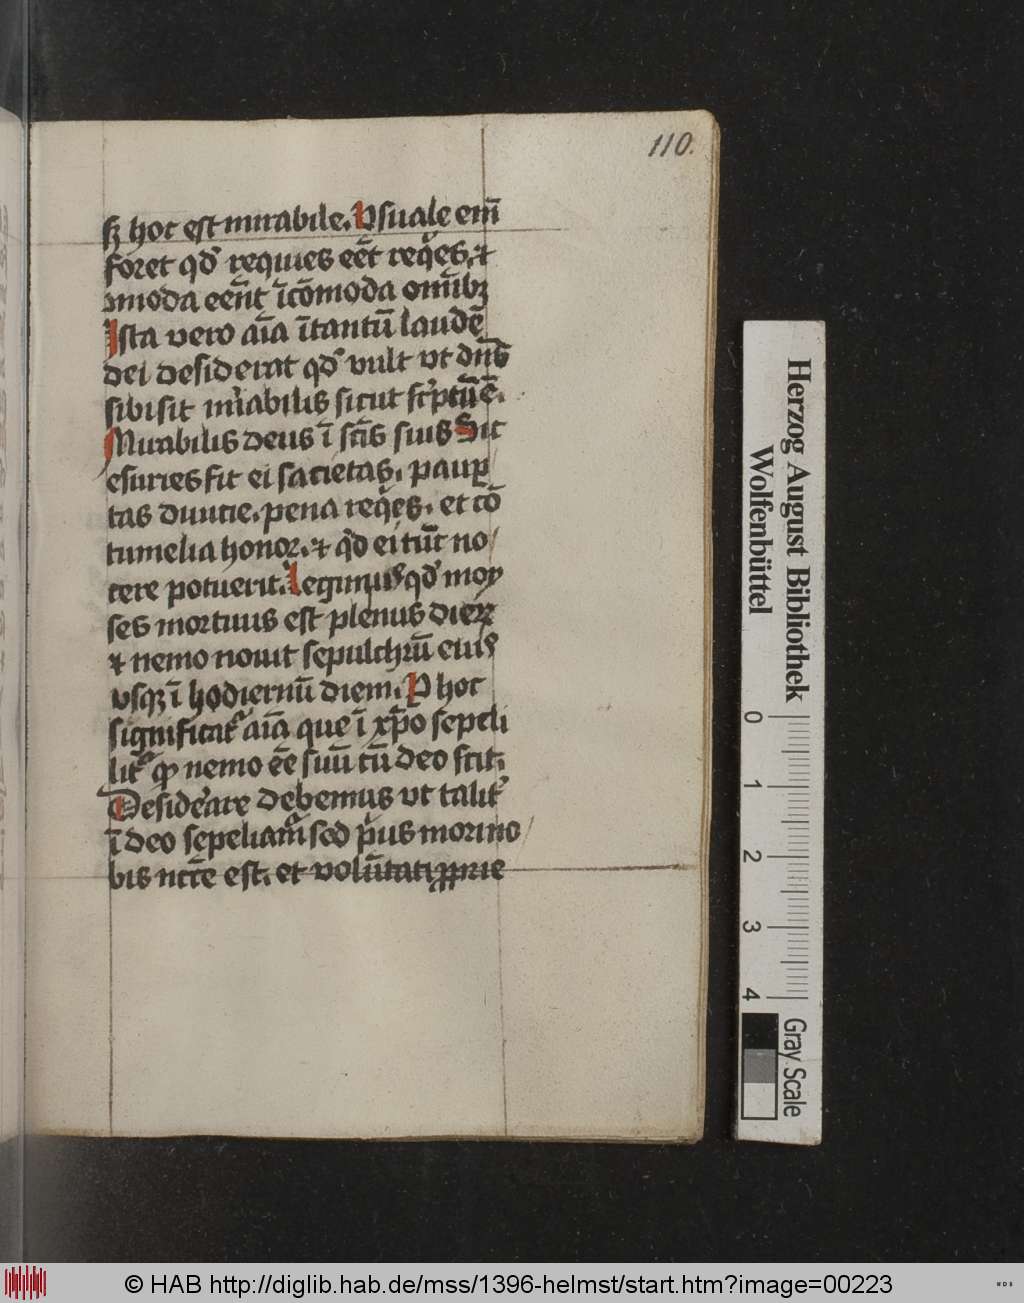 110.
sꝫ hoc est mirabile. Vsuale em̄
foret qď requies eēt reqͥes, ⁊
ɔmoda eēnt īcōmoda om̄ibꝫ
Ista vero aīa ītantū laudē
dei desiderat qď vult vt dn̄s
sibi sit mͥabilis sicut scͥptū ē.
Mirabilis deus ī sc̄is suis Sic
esuries fit ei sacietas, pauꝑ
tas diuicie. pena reqͥes. et cō
tumelia honor. ⁊ qͥd ei tūc no/
cere potuerit. Legimus qď moy
ses mortuus est plenus dieꝝ
⁊ nemo nouit sepulchrū eius
vsqꝫ ī hodiernū diem. P hoc
significat᷑ aīa que ī xp̄o sepeli
lit᷑ ꝙ nemo ēe suū cū deo scit.
Desid̾are debemus vt talit᷑
ī deo sepeliam᷑ sed pͥus mori no/
bis ncc̄e est. et volūtati ꝓprie
Herzog August Bibliothek
Wolfenbüttel
0 1 2 3 4
Gray Scale
© HAB http://diglib.hab.de/mss/1396-helmst/start.htm?image=00223
WDB